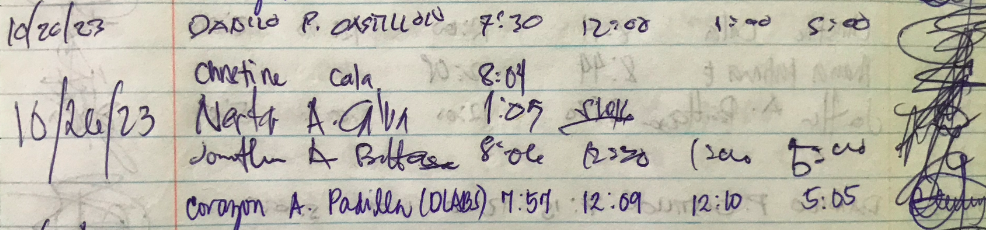 10/26/23 DANILO P. CASTILLO 7:30 12:00 1:00 5:00
Christine Cala 8:04
10/26/23 A. 1:05
Jonathan A 8:06 12:30 1:00 5:00
Corazon A. Padilla (OLABS) 7:57 12:09 12:10 5:05